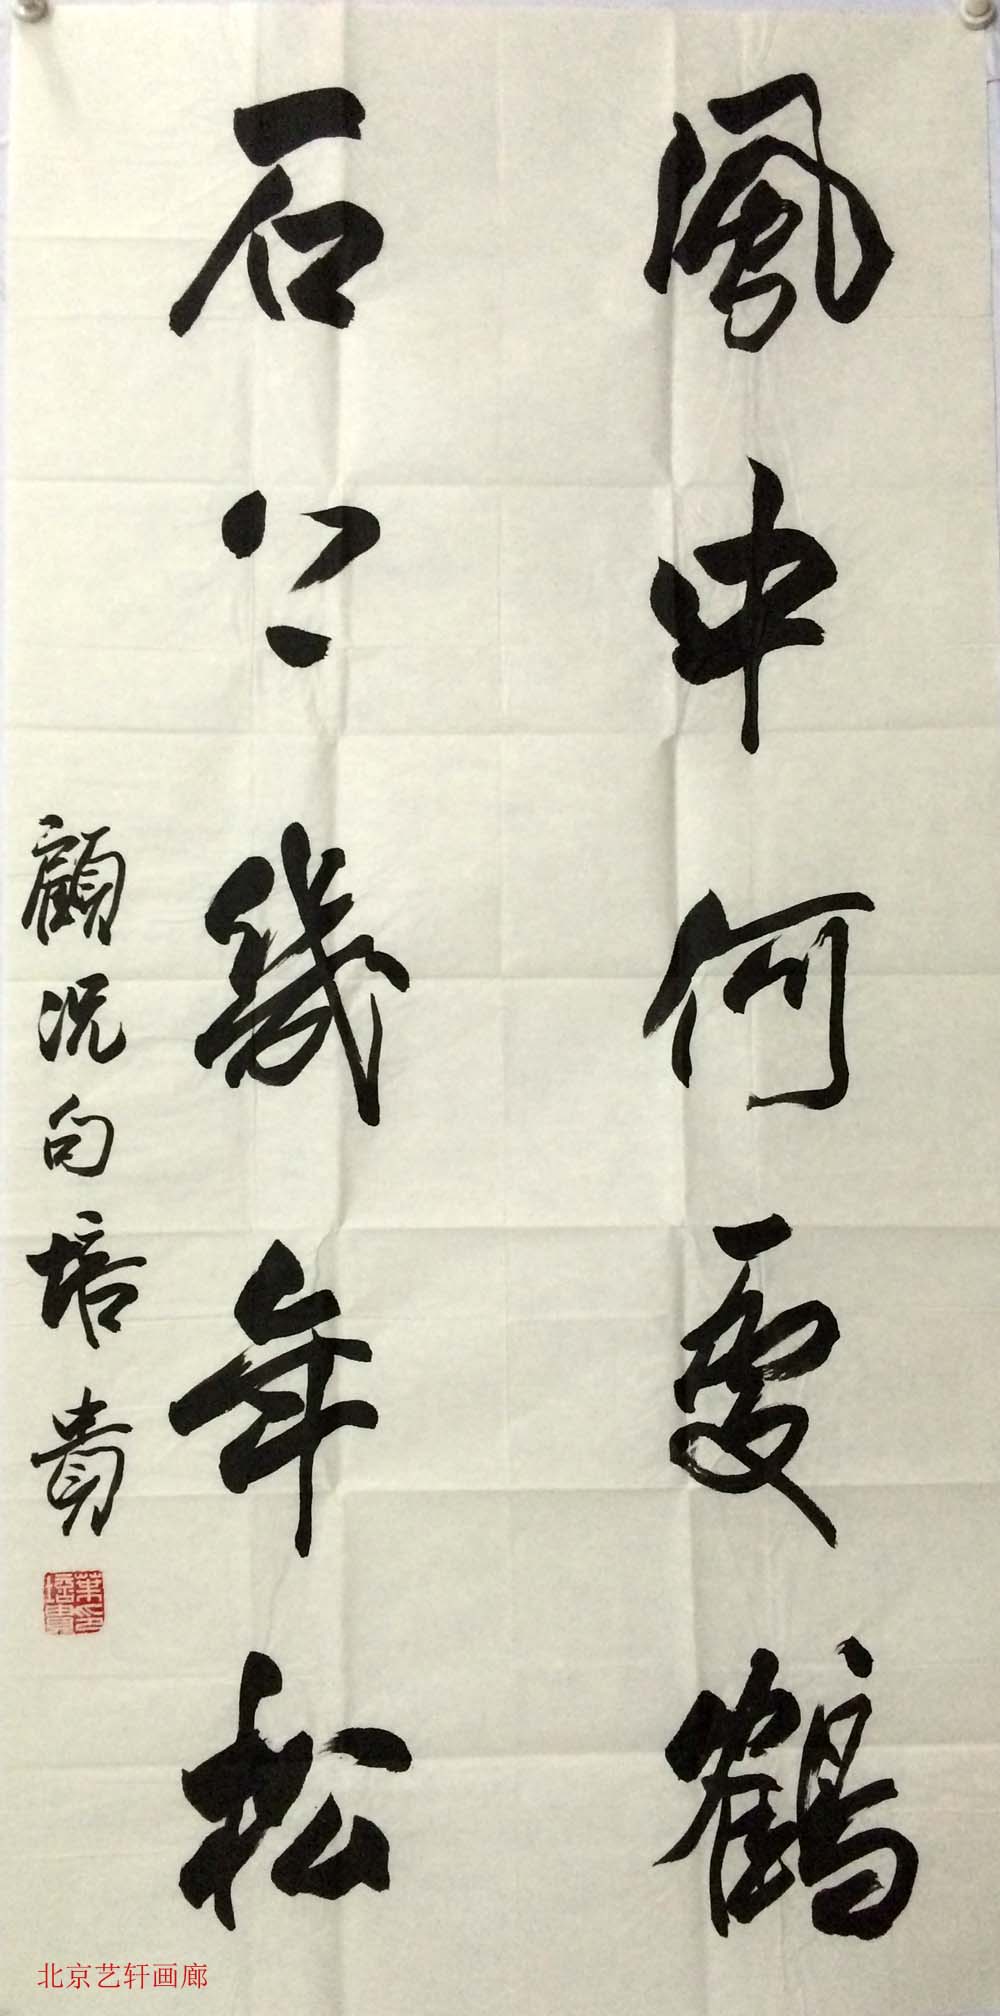 風中何處鶴
石上幾年松
顧况句培貴
葉印培貴
北京艺轩画廊